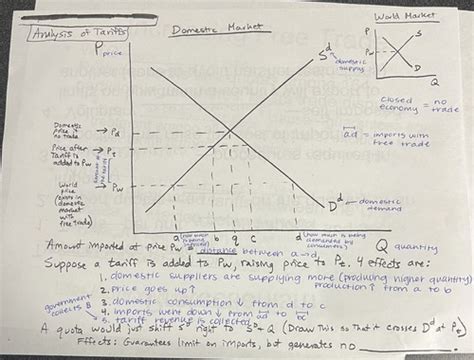 Analysis of Tariffs
Domestic Market
World Market
P price
P
S
Pw
D
Q
Sᵈ
domestic supply
closed economy = no trade
ad = imports with free trade
Domestic price if no trade → Pd
Price after Tariff is added to Pw → Pt
World price (exists in domestic market with free trade) → Pw
Dᵈ ← domestic demand
a b q c d
Q quantity
Amount imported at price Pw = distance between a and d
Suppose a tariff is added to Pw, raising price to Pt. 4 effects are:
1. domestic suppliers are supplying more (producing higher quantity)
production ↑ from a to b
2. price goes up ↑
3. domestic consumption ↓ from d to c
4. imports went down ↓ from ad to bc
5. tariff revenue is collected
government collects B
A quota would just shift Sᵈ right to Sᵈ+Q (Draw this so that it crosses Dᵈ at Pt)
Effects: Guarantees limit on imports, but generates no